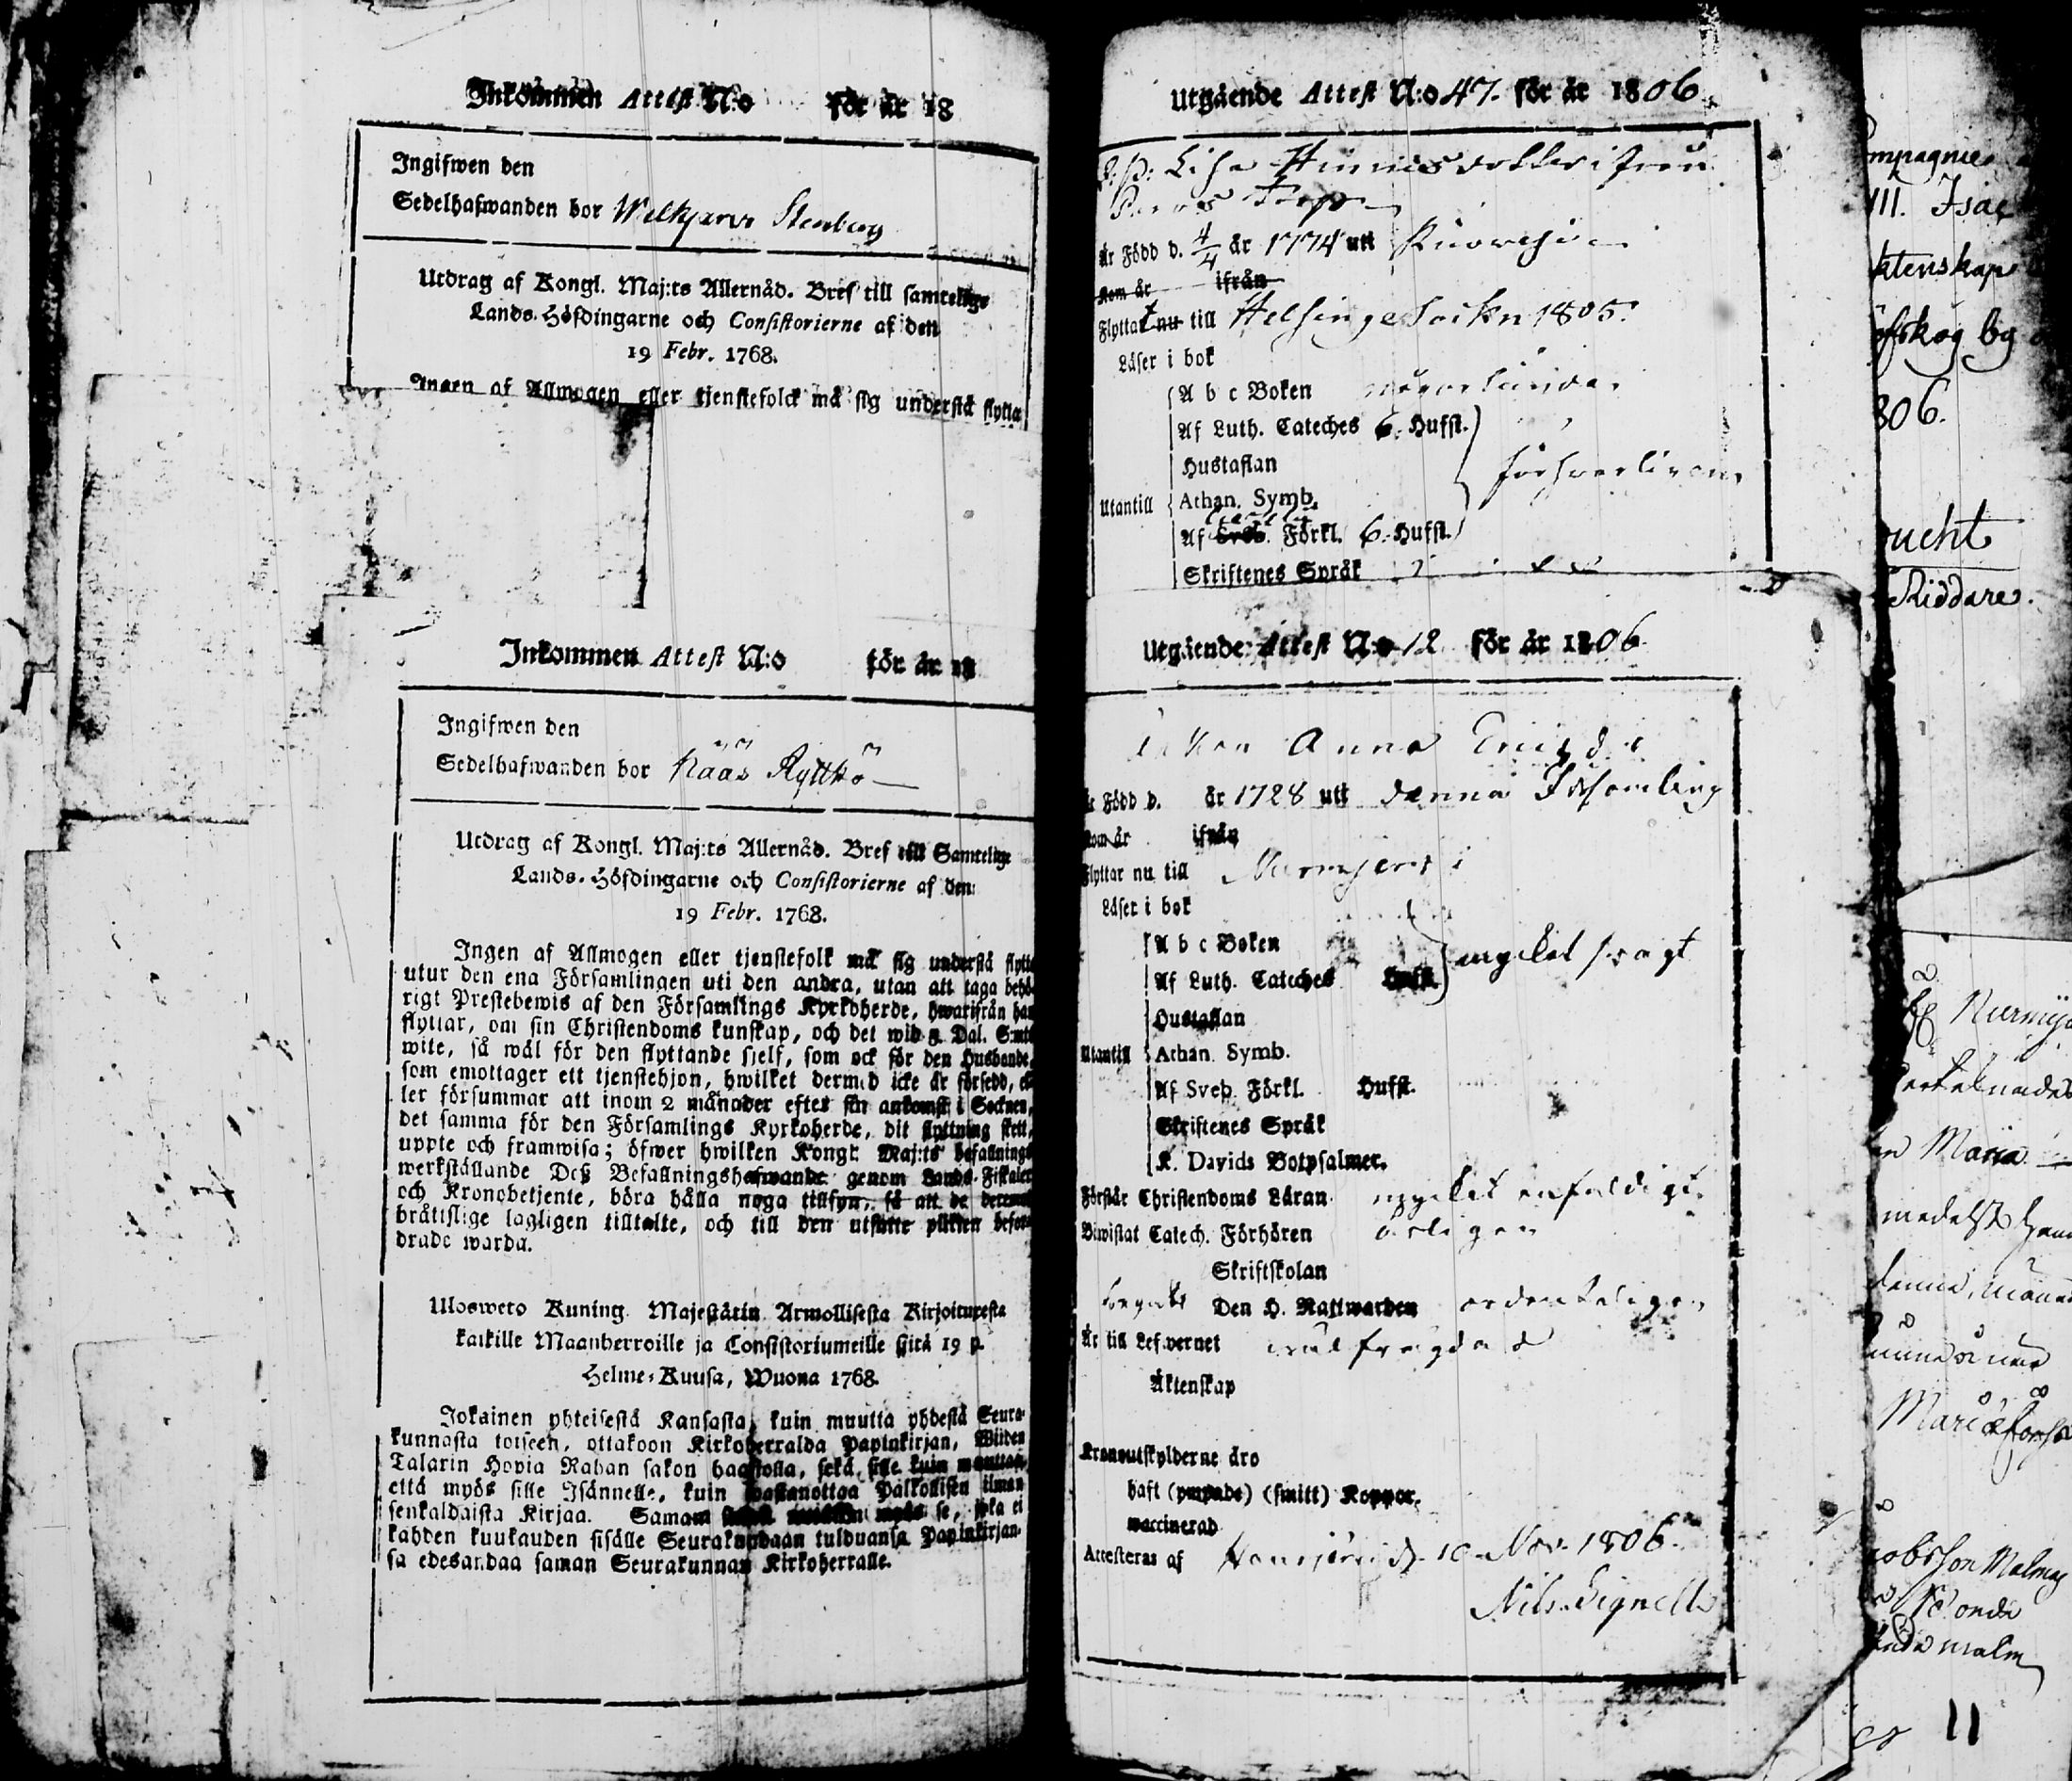 Inkommen Attest N:o för år 18
Ingifwen den
Sedelhafwanden bor Welkjerwi Stenberg
Utdrag af Kongl. Maj:ts Allernåd. Bref till samtelige
Lands-Höfdingarne och Consistorierne af den
19 Febr. 1768.
Ingen af Allmogen eller tjenstefolck må sig understå flytta
Inkommen Attest N:o för år 18
Ingifwen den
Sedelhafwanden bor Nääs Ryttkö
Utdrag af Kongl. Maj:ts Allernåd. Bref till Samtelige
Lands-Höfdingarne och Consistorierne af den
19 Febr. 1768.
Ingen af Allmogen eller tjenstefolk må sig understå flytta
utur den ena Församlingen uti den andra, utan att taga behö-
rigt Prestebewis af den Församlings Kyrkoherde, hwarifrån han
flyttar, om sin Christendoms kunskap, och det wid 5 Dal. S:mts
wite, så wäl för den flyttande sjelf, som ock för den Husbonde,
som emottager ett tjenstehjon, hwilket dermed icke är försedd, el-
ler försummar att inom 2 månader efter sin ankomst i Socknen,
det samma för den Församlings Kyrkoherde, dit flyttning skett,
uppte och framwisa; öfwer hwilken Kongl. Maj:ts befallnings
werkställande Deß Befallningshafwande genom Lands-Fiskaler
och Kronobetjente, böra hålla noga tillsyn, så att de
bråttslige lagligen tilltalte, och till den utsatte plikten befor-
drade warda.
Ulosweto Kuning. Majestätin Armollisesta Kirjoituxesta
kaikille Maanherroille ja Consistoriumeille siitä 19 p.
Helme-Kuusa, Wuona 1768.
Jokainen yhteisestä Kansasta, kuin muutta yhdestä Seura-
kunnasta toiseen, ottakoon Kirkoherralda Papinkirjan, Wiiden
Talarin Hopia Rahan sakon haastolla, sekä sille kuin muuttaa,
että myös sille Isännelle, kuin wastanottaa Palkollisen ilman
senkaldaista Kirjaa. Samam se, joka ei
kahden kuukauden sisälle Seurakundaan tulduansa Papinkirjan-
sa edesandaa saman Seurakunnan Kirkoherralle.
Utgående Attest N:o 47. för år 1806
Lisa Hinricsdotter ifrån
Är Född d. 4/4 år 1774 uti
Kom år ifrån
Flyttat nu till Helsinge Sockn 1805.
Läser i bok
A b c Boken någorlunda.
Af Luth. Cateches 6. Hufst.
Hustaflan
Utantill Athan. Symb. försvarligen
Af Sveb. Förkl. 6. Hufst.
Skriftenes Språk
Utgående Attest N:o 12 för år 1806
Enkan Anna
Är Född d. år 1728 uti denna Församling
Kom år ifrån
Flyttar nu till Nurmijervi
Läser i bok
A b c Boken
Af Luth. Cateches Hufst. mycket svagt
Hustaflan
Utantill Athan. Symb.
Af Sveb. Förkl. Hufst.
Skriftenes Språk
K. Davids Botpsalmer.
Förstår Christendoms Läran mycket enfaldigt.
Biwistat Catech. Förhören årligen
Skriftskolan
begått Den H. Nattwarden ordenteligen
Är till Lefvernet wälfrägdad
Äktenskap
Kronoutskylderne äro
haft (ympade) (smitt) Koppor.
waccinerad
Attesteras af d. 10 Nov. 1806.
Nils Signell
mpagnie
III. Isac
ktenskap
fskog by
806.
ucht
Riddare.
Nurmij
Maria
medelst
denna, måna
Mari
cobsson Malmg
onde
malm
11